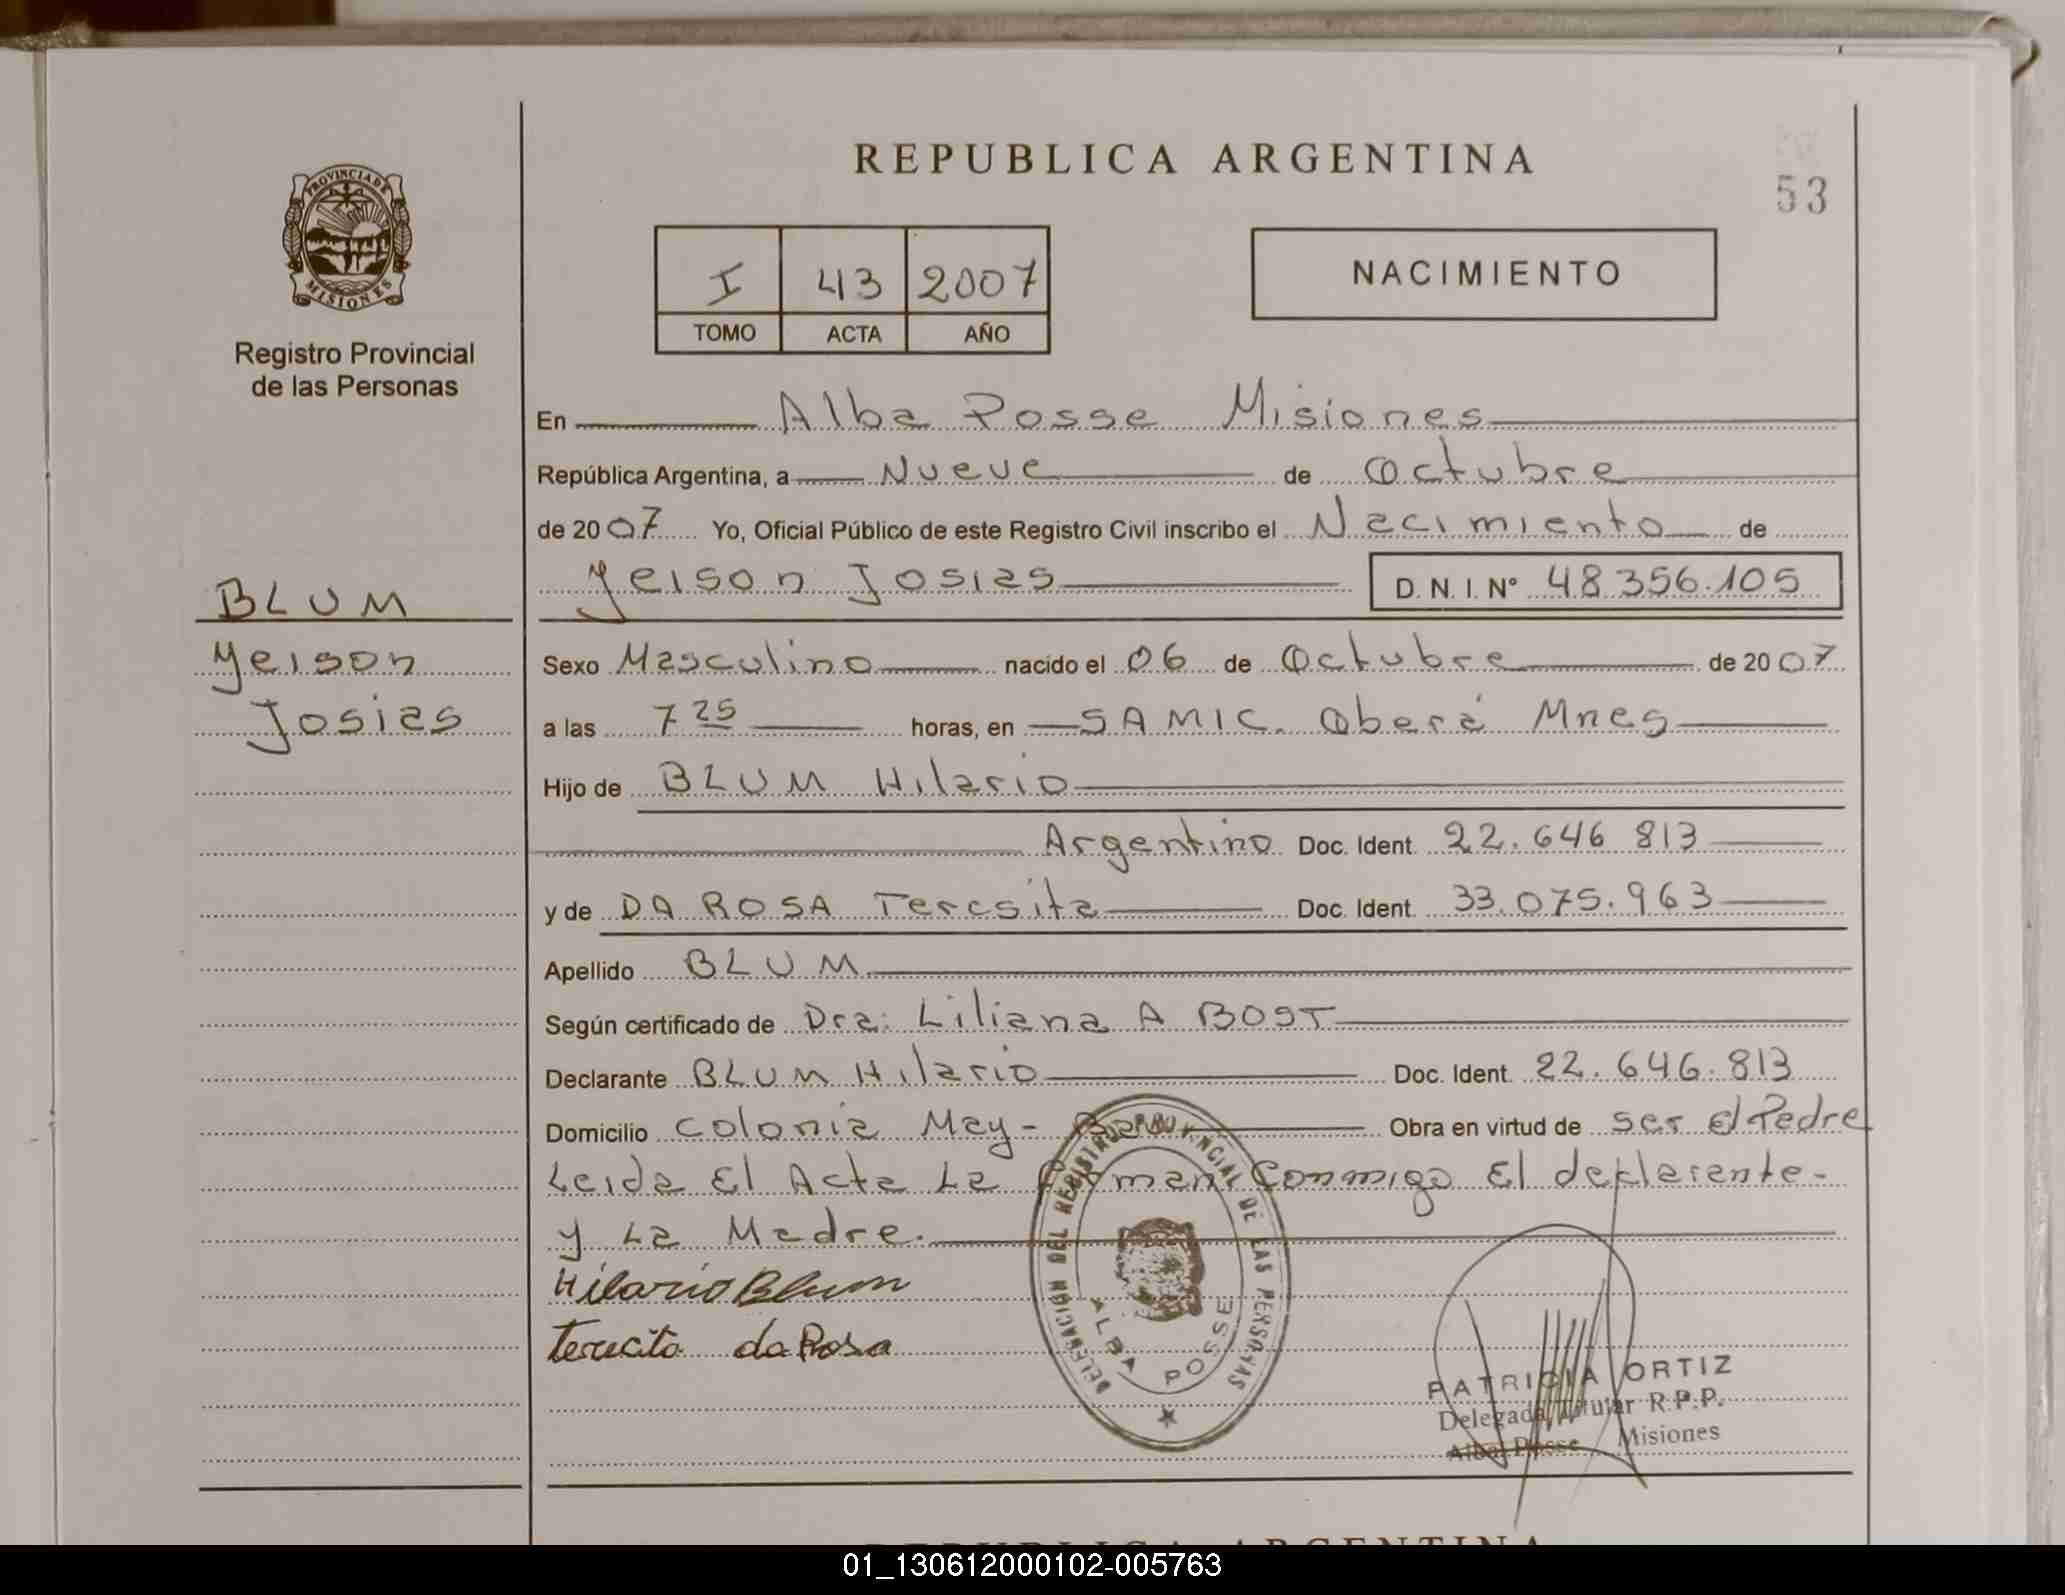 REPUBLICA ARGENTINA
53
PROVINCIA DE MISIONES
Registro Provincial
de las Personas
I 43 2007
TOMO ACTA AÑO
NACIMIENTO
En Alba Posse Misiones
República Argentina, a Nueve de Octubre
de 2007 Yo, Oficial Público de este Registro Civil inscribo el Nacimiento de
Yeison Josias D. N. I. Nº 48.356.105
BLUM
Yeison
Josias
Sexo Masculino nacido el 06 de Octubre de 2007
a las 7 25 horas, en SAMIC. Oberá Mnes
Hijo de BLUM Hilario
Argentino Doc. Ident. 22.646 813
y de DA ROSA Teresita Doc. Ident. 33.075.963
Apellido BLUM
Según certificado de Dra: Liliana A BOST
Declarante BLUM Hilario Doc. Ident. 22.646.813
Domicilio Colonia May- Obra en virtud de ser El Padre
Leida El Acta La firman Conmigo El declarante-
y La Madre.
Hilario Blum
Terecita da Rosa
DELEGACION DEL REGISTRO PROVINCIAL DE LAS PERSONAS
ALBA POSSE
PATRICIA ORTIZ
Delegada Titular R.P.P.
Alba Posse Misiones
REPUBLICA ARGENTINA
01_130612000102-005763